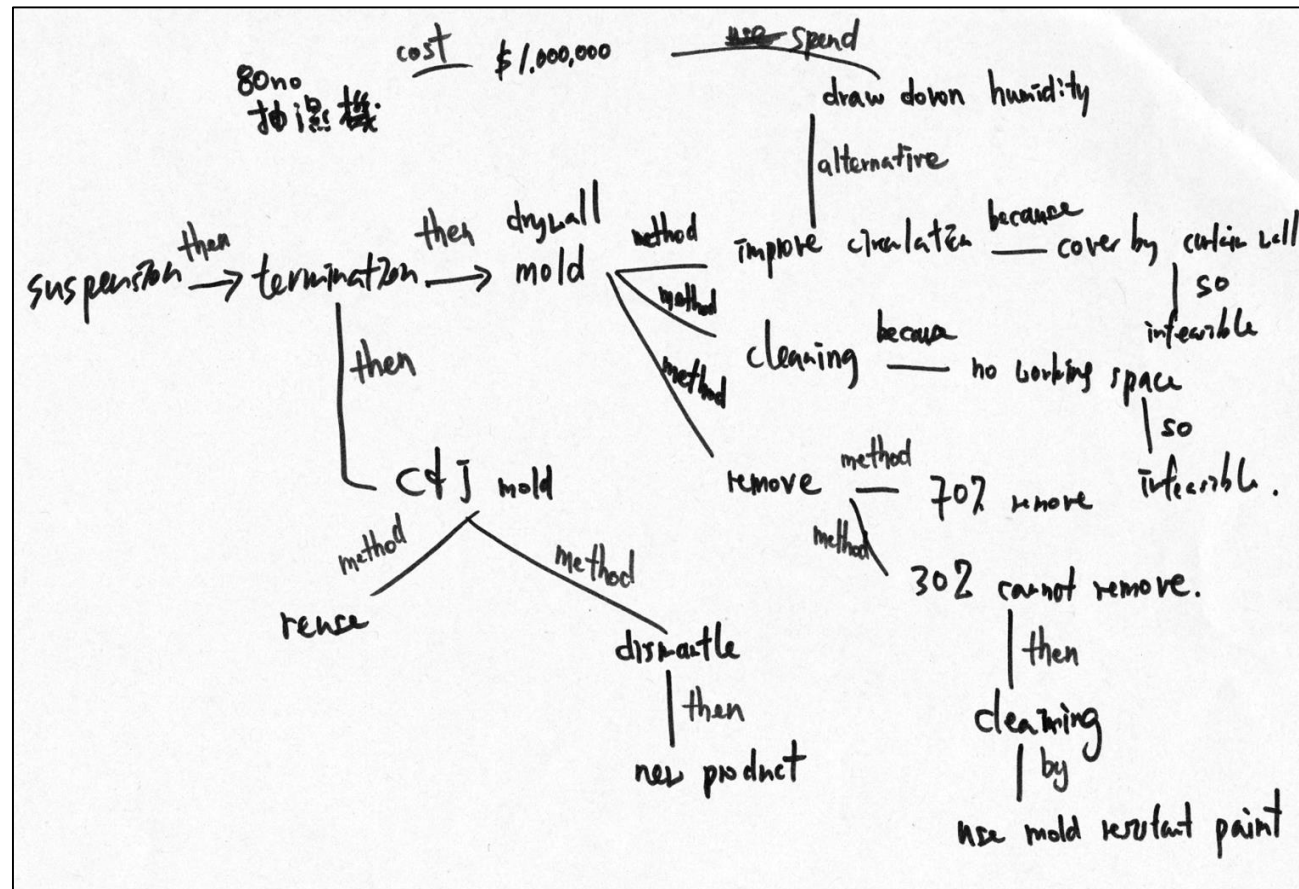 cost $1,000,000 spend
80no
抽濕機
draw down humidity
alternative
suspension then termination then drywall mold
method improve circulation because cover by curtain wall
so
infeasible
method cleaning because no working space
so
infeasible.
method remove method 70% remove
method 30% cannot remove.
then
cleaning
by
use mold resistant paint
then
C&J mold
method reuse
method dismantle
then
new product